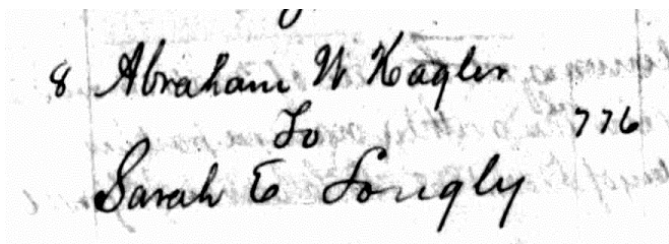 8 Abraham W Kagler
To 776
Sarah E Longly